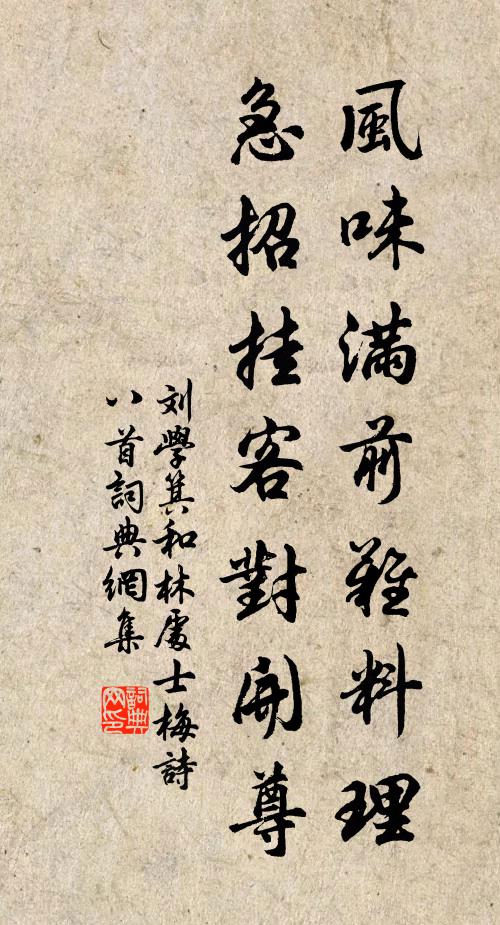 風味滿前難料理
急招挂客對開尊
刘學箕和林處士梅詩
八首詞典網集
詞典网印